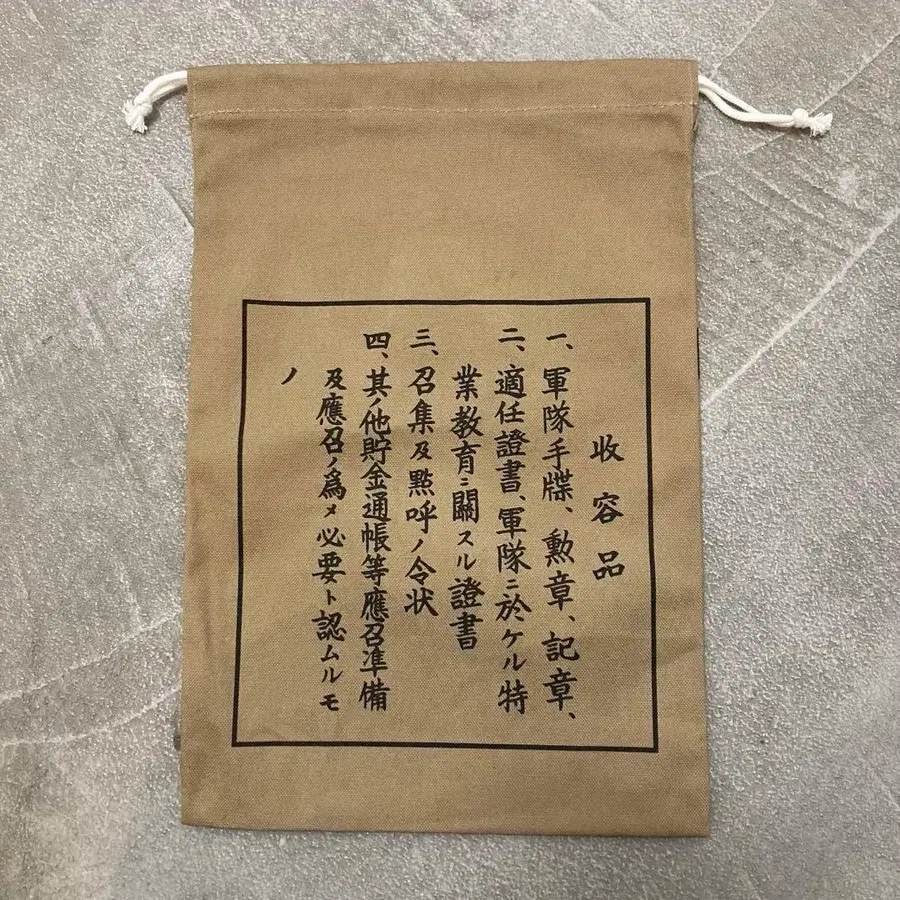 收容品
一、軍隊手牒、勲章、記章、
二、適任證書、軍隊ニ於ケル特
業教育ニ關スル證書
三、召集及點呼ノ令状
四、其ノ他貯金通帳等應召準備
及應召ノ爲メ必要ト認ムルモ
ノ